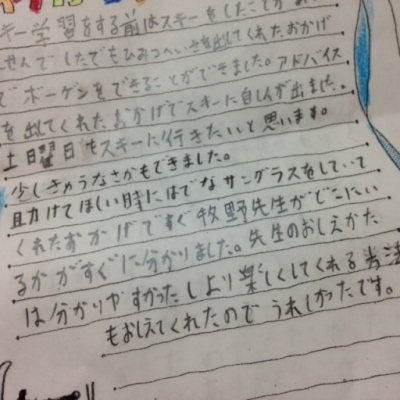 キー学習をする前はスキーをしたことがあ
せんでしたでもひみつへいきを出してくれたおかげ
でボーゲンをできることができました。アドバイス
を出してくれたおかげでスキーに自しんが出ました。
土曜日もスキーに行きたいと思います。
少しきゅうなさかもできました。
助けてほしい時にはでなサングラスをしていて
くれたおかげですぐ牧野先生がどこにい
るかがすぐに分かりました。先生のおしえかた
は分かりやすかったしより楽しくしてくれる方法
もおしえてくれたのでうれしかったです。